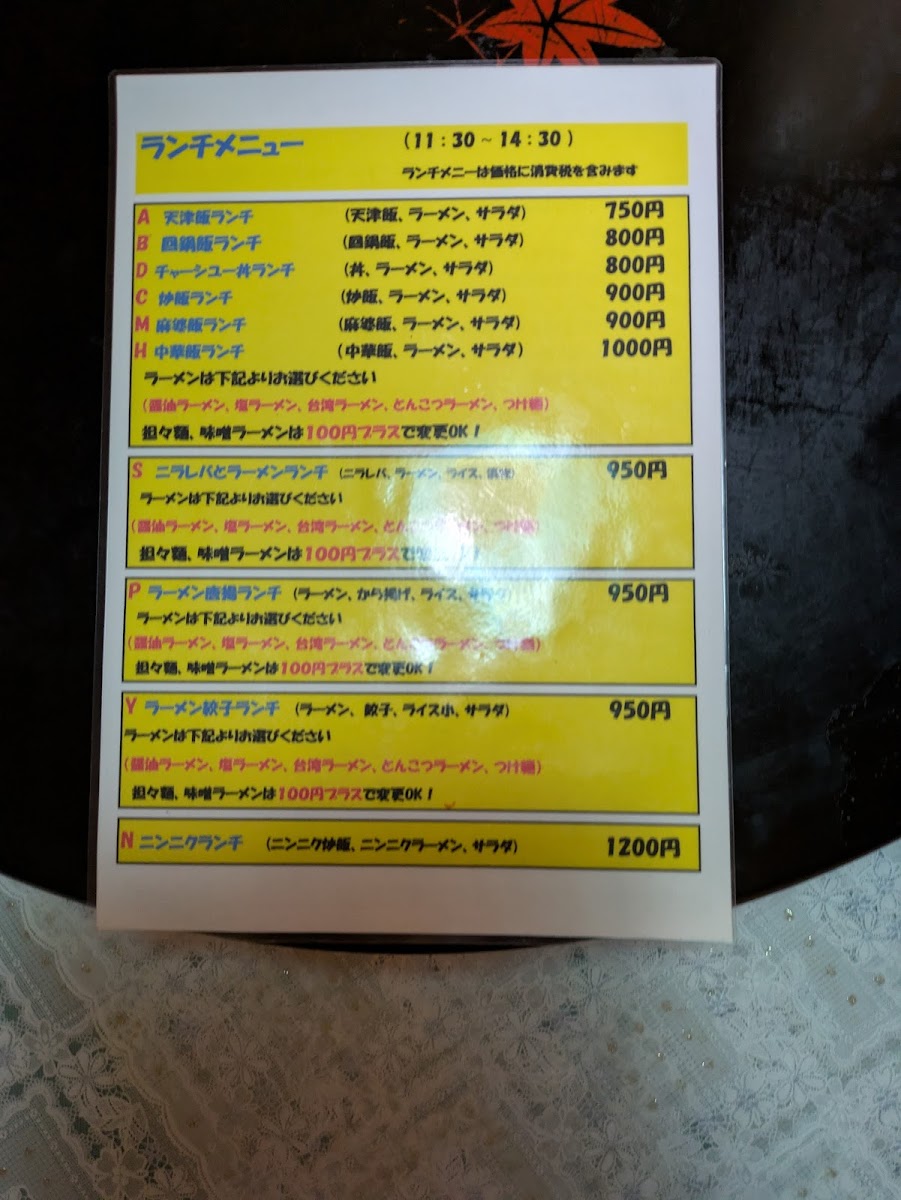 ランチメニュー (11:30~14:30)
ランチメニーは価格に消費税を含みます
A 天津飯ランチ (天津飯、ラーメン、サラダ) 750円
B 回鍋飯ランチ (回鍋飯、ラーメン、サラダ) 800円
D チャーシュー丼ランチ (丼、ラーメン、サラダ) 800円
C 炒飯ランチ (炒飯、ラーメン、サラダ) 900円
M 麻婆飯ランチ (麻婆飯、ラーメン、サラダ) 900円
H 中華飯ランチ (中華飯、ラーメン、サラダ) 1000円
ラーメンは下記よりお選びください
(醤油ラーメン、塩ラーメン、台湾ラーメン、とんこつラーメン、つけ麺)
担々麺、味噌ラーメンは100円プラスで変更OK!
S ニラレバとラーメンランチ (ニラレバ、ラーメン、ライス、 950円
ラーメンは下記よりお選びください
(醤油ラーメン、塩ラーメン、台湾ラーメン、とんこつラーメン、つけ麺)
担々麺、味噌ラーメンは100円プラスで変更OK!
P ラーメン唐揚ランチ (ラーメン、から揚げ、ライス、サラダ) 950円
ラーメンは下記よりお選びください
(醤油ラーメン、塩ラーメン、台湾ラーメン、とんこつラーメン、つけ麺)
担々麺、味噌ラーメンは100円プラスで変更OK!
Y ラーメン餃子ランチ (ラーメン、餃子、ライス小、サラダ) 950円
ラーメンは下記よりお選びください
(醤油ラーメン、塩ラーメン、台湾ラーメン、とんこつラーメン、つけ麺)
担々麺、味噌ラーメンは100円プラスで変更OK!
N ニンニクランチ (ニンニク炒飯、ニンニクラーメン、サラダ) 1200円